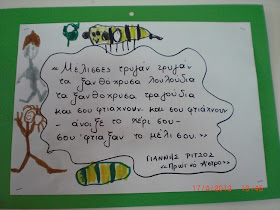 «Μέλισσες τρυγάν τρυγάν
τα ξανθόχρυσα λουλούδια
τα ξανθόχρυσα τραγούδια
και σου φτιάχνουν και σου φτιάχνουν
- άνοιξε το χέρι σου -
σου φτιάξαν το μέλι σου.»
ΓΙΑΝΝΗΣ ΡΙΤΣΟΣ
«Πρωινό Άστρο»